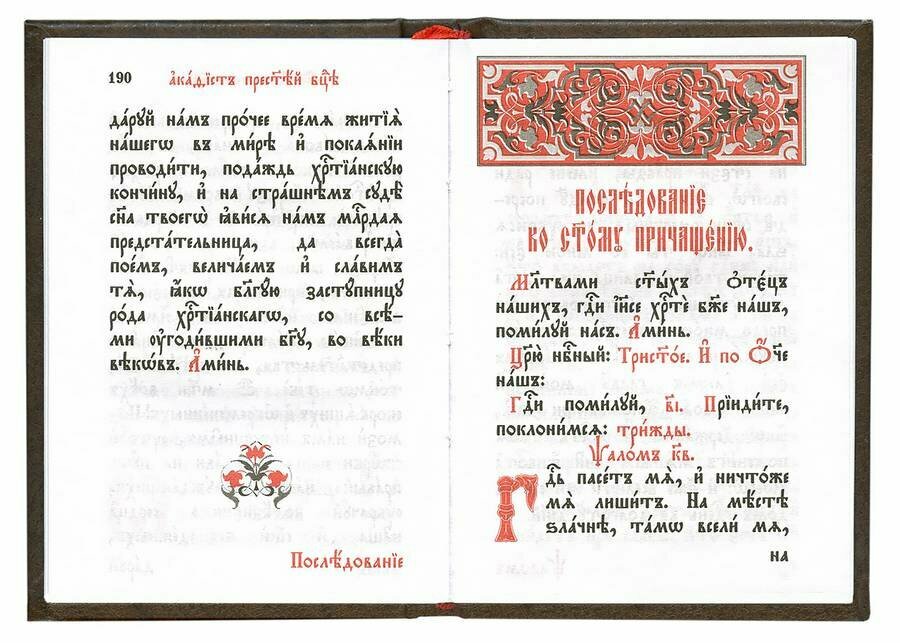 190 а҆ка́ѳїстъ прест҃ѣ́й бц҃ѣ
да́руй на́мъ про́чее вре́мѧ житїѧ̀
на́шегѡ въ ми́рѣ и҆ покаѧ́нїи
проводи́ти, пода́ждь хрⷭ҇тїа́нскую
кончи́ну, и҆ на стра́шнѣмъ сꙋдѣ̀
сн҃а твоегѡ̀ ꙗ҆ви́сѧ на́мъ млⷭ҇рдаѧ
предста́тельница, да всегда̀
пое́мъ, велича́емъ и҆ сла́вимъ
тѧ̀, ꙗ҆́кѡ бл҃гую застꙋ́пницꙋ
ро́да хрⷭ҇тїа́нскагѡ, со всѣ́-
ми ᲂу҆годи́вшими бг҃ꙋ, во вѣ́ки
вѣкѡ́въ. А҆ми́нь.
Послѣ́дованїе
ПОСЛѢ́ДОВАНЇЕ
КО СТ҃О́МꙊ ПРИЧАЩЕ́НЇЮ.
Мл҃твами ст҃ы́хъ ѻ҆те́цъ
на́шихъ, гдⷭ҇и і҆и҃се хрⷭ҇тѐ бж҃е на́шъ,
поми́лꙋй на́съ. А҆ми́нь.
Цр҃ю̀ нбⷭ҇ный: Трист҃о́е. И҆ по Ѻ҆́че
на́шъ:
Гдⷭ҇и поми́лꙋй, в҃і. Прїиди́те,
поклони́мсѧ: три́жды.
Ѱало́мъ к҃в.
Гдⷭ҇ь пасе́тъ мѧ̀, и҆ ничто́же
мѧ̀ лиши́тъ. На мѣ́стѣ
ѕла́чнѣ, та́мѡ всели́ мѧ,
на